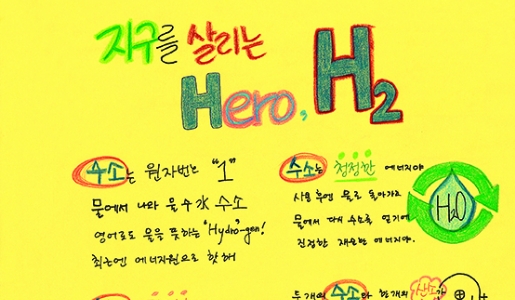 지구를 살리는
Hero, H2
수소는 원자번호 "1"
물에서 나와 물 수 水 수소
영어로도 물을 뜻하는 "Hydro-gen!
최근엔 에너지원으로 핫해
수소는 청정한 에너지야
사용 후엔 물로 돌아가고
물에서 다시 수소를 얻기에
진정한 재생 에너지야.
H2O
두 개의 수소와 한 개의 산소가